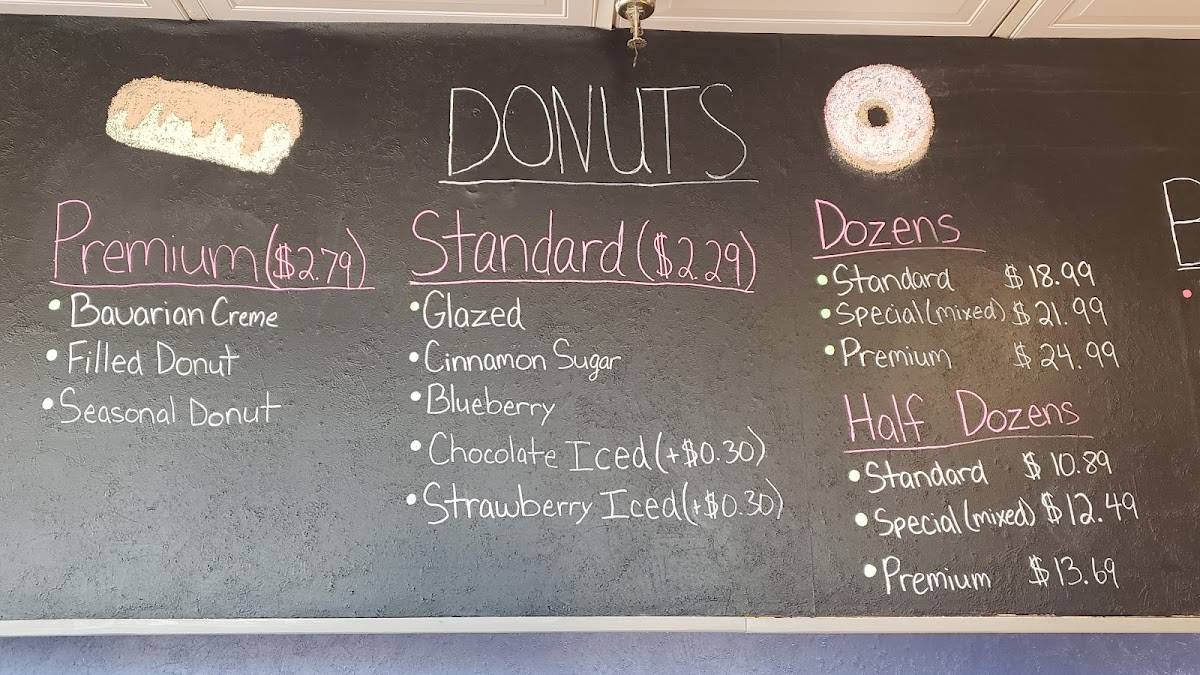 DONUTS
Premium ($2.79)
• Bavarian Creme
• Filled Donut
• Seasonal Donut
Standard ($2.29)
• Glazed
• Cinnamon Sugar
• Blueberry
• Chocolate Iced (+$0.30)
• Strawberry Iced (+$0.30)
Dozens
• Standard $18.99
• Special (mixed) $21.99
• Premium $24.99
Half Dozens
• Standard $10.89
• Special (mixed) $12.49
• Premium $13.69